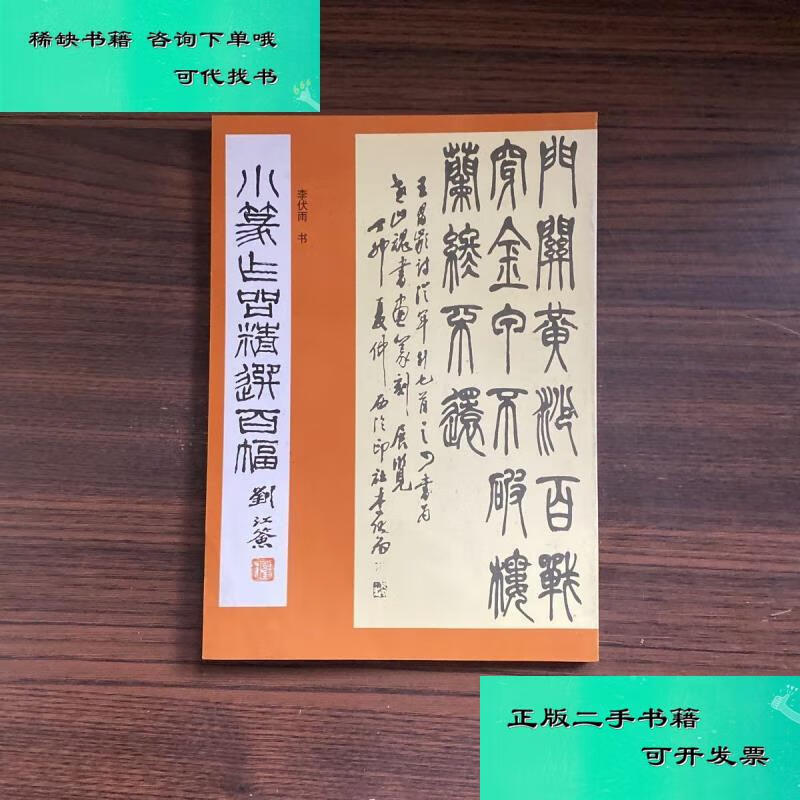 稀缺书籍 咨询下单哦
可代找书
小篆作品精選百幅
劉江簽
李伏雨 书
門關黃沙百戰
穿金甲不破樓
蘭終不還
王昌齡詩從軍行七首之四書为
老山魂書畫篆刻展覽
丁卯夏仲西泠印社李伏雨
正版二手书籍
可开发票